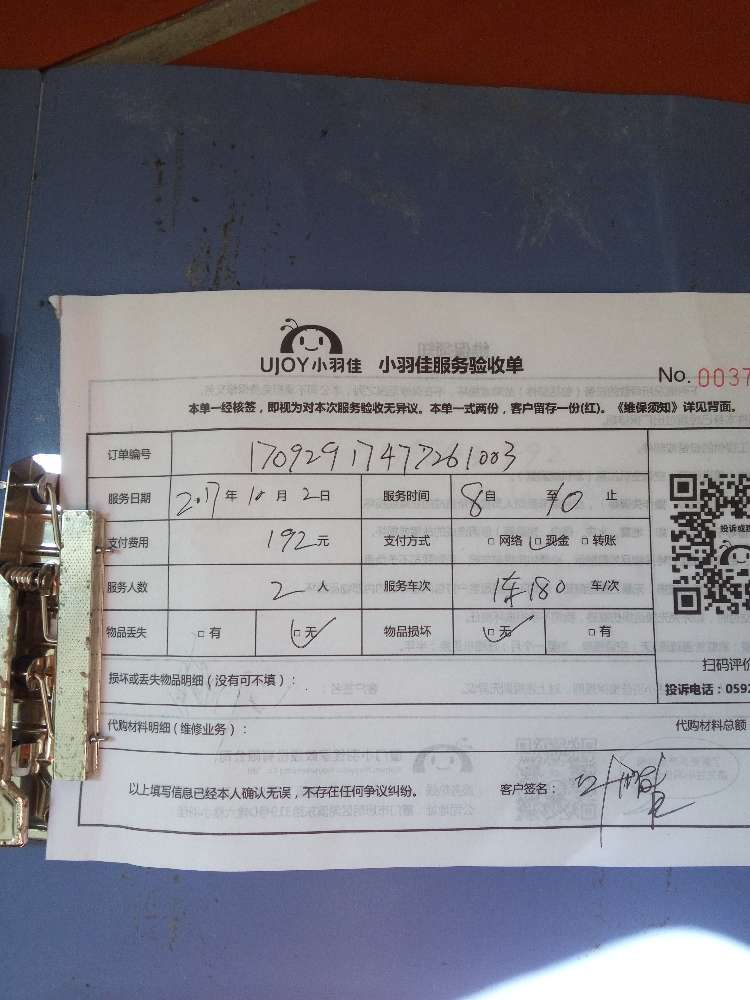 UJOY小羽佳 小羽佳服务验收单
No. 0037
本单一经核签，即视为对本次服务验收无异议。本单一式两份，客户留存一份(红)。《维保须知》详见背面。
订单编号 17092917477261003
服务日期 2017年10月2日 服务时间 8自 至10止
支付费用 192元 支付方式 □网络 □现金 □转账
投诉或
服务人数 2人 服务车次 1车180 车/次
物品丢失 □有 □无 物品损坏 □无 □有
扫码评价
损坏或丢失物品明细（没有可不填）：
投诉电话：0592
代购材料明细（维修业务）： 代购材料总额
以上填写信息已经本人确认无误，不存在任何争议纠纷。 客户签名：